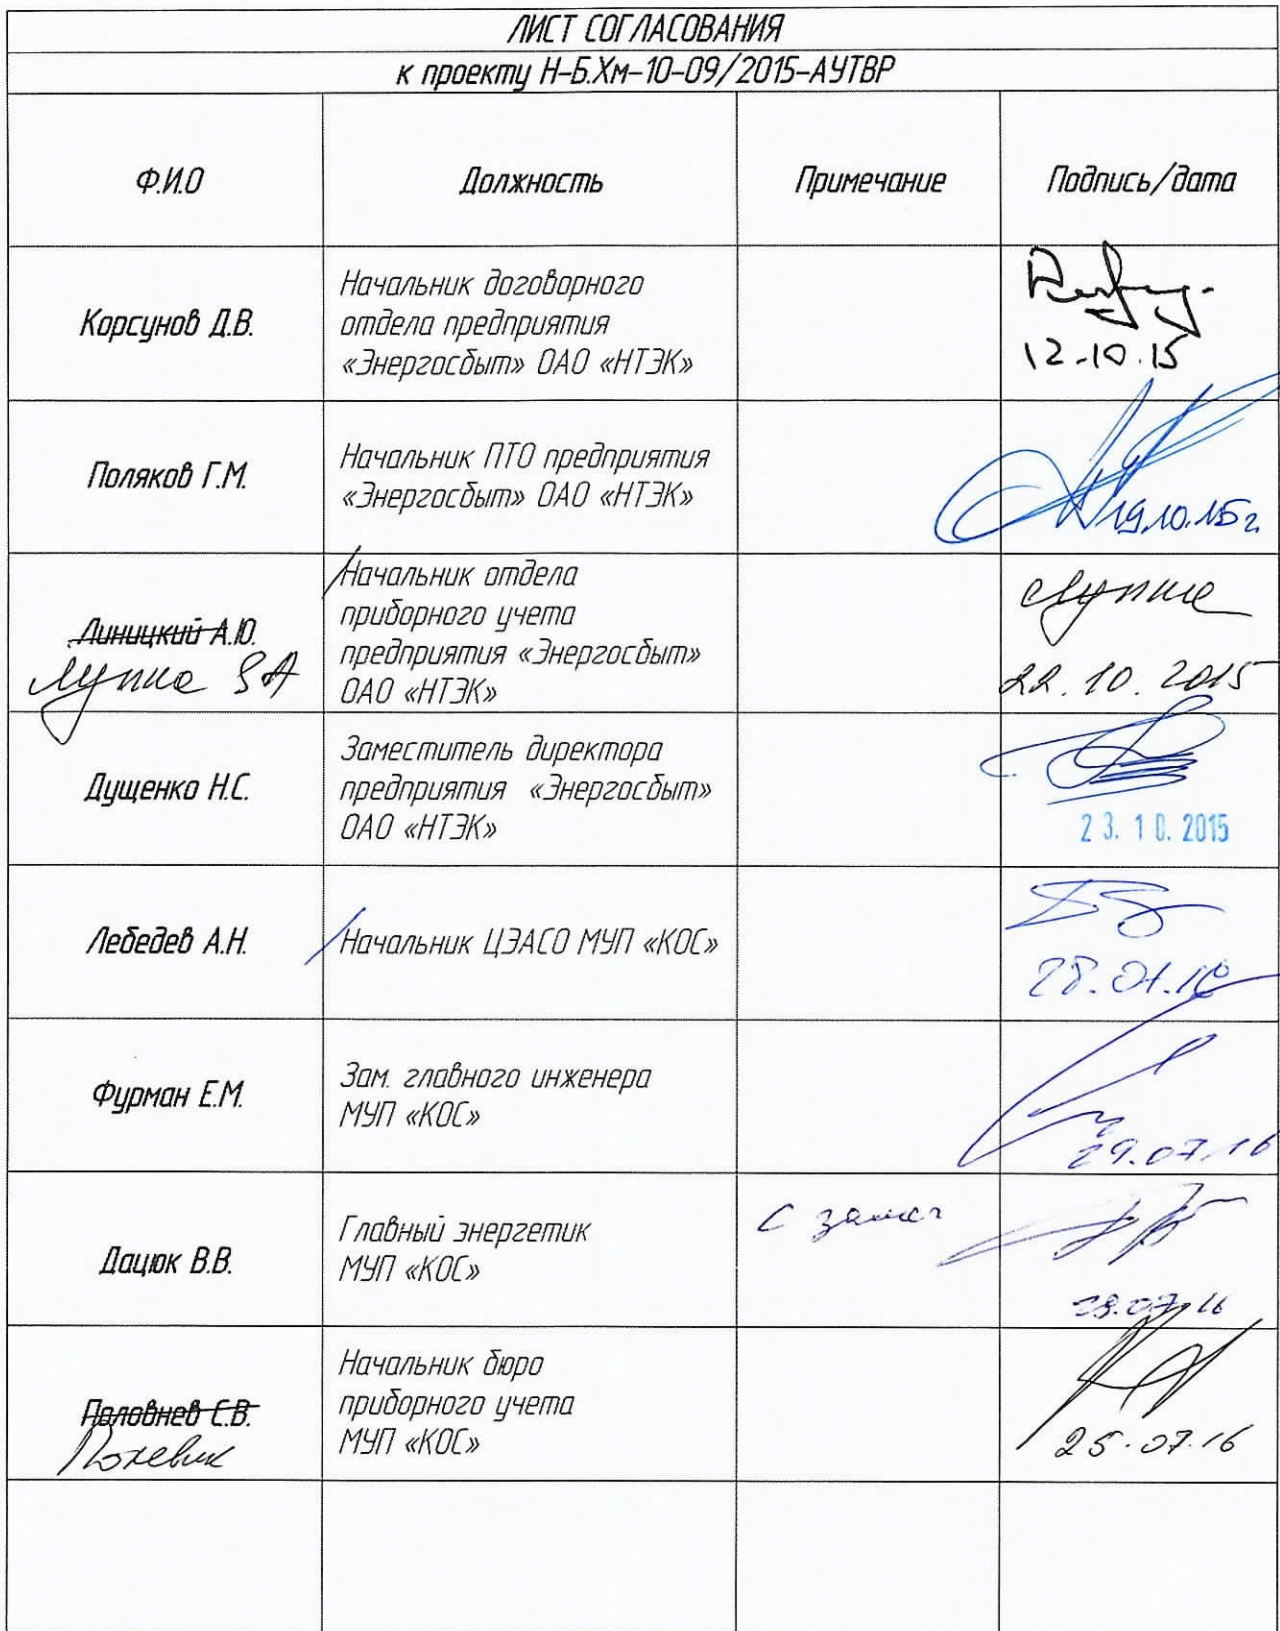 ЛИСТ СОГЛАСОВАНИЯ
к проекту Н-Б.Хм-10-09/2015-АУТВР
Ф.И.О
Должность
Примечание
Подпись/дата
Корсунов Д.В.
Начальник договорного
отдела предприятия
«Энергосбыт» ОАО «НТЭК»
12.10.15
Поляков Г.М.
Начальник ПТО предприятия
«Энергосбыт» ОАО «НТЭК»
19.10.15г.
Линицкий А.Ю.
Луппа
Начальник отдела
приборного учета
предприятия «Энергосбыт»
ОАО «НТЭК»
22.10.2015
Дущенко Н.С.
Заместитель директора
предприятия «Энергосбыт»
ОАО «НТЭК»
23.10.2015
Лебедев А.Н.
/Начальник ЦЭАСО МУП «КОС»
Фурман Е.М.
Зам. главного инженера
МУП «КОС»
29.07.16
Дацюк В.В.
Главный энергетик
МУП «КОС»
С замеч
28.07.16
Половнев С.В.
Начальник бюро
приборного учета
МУП «КОС»
25.07.16